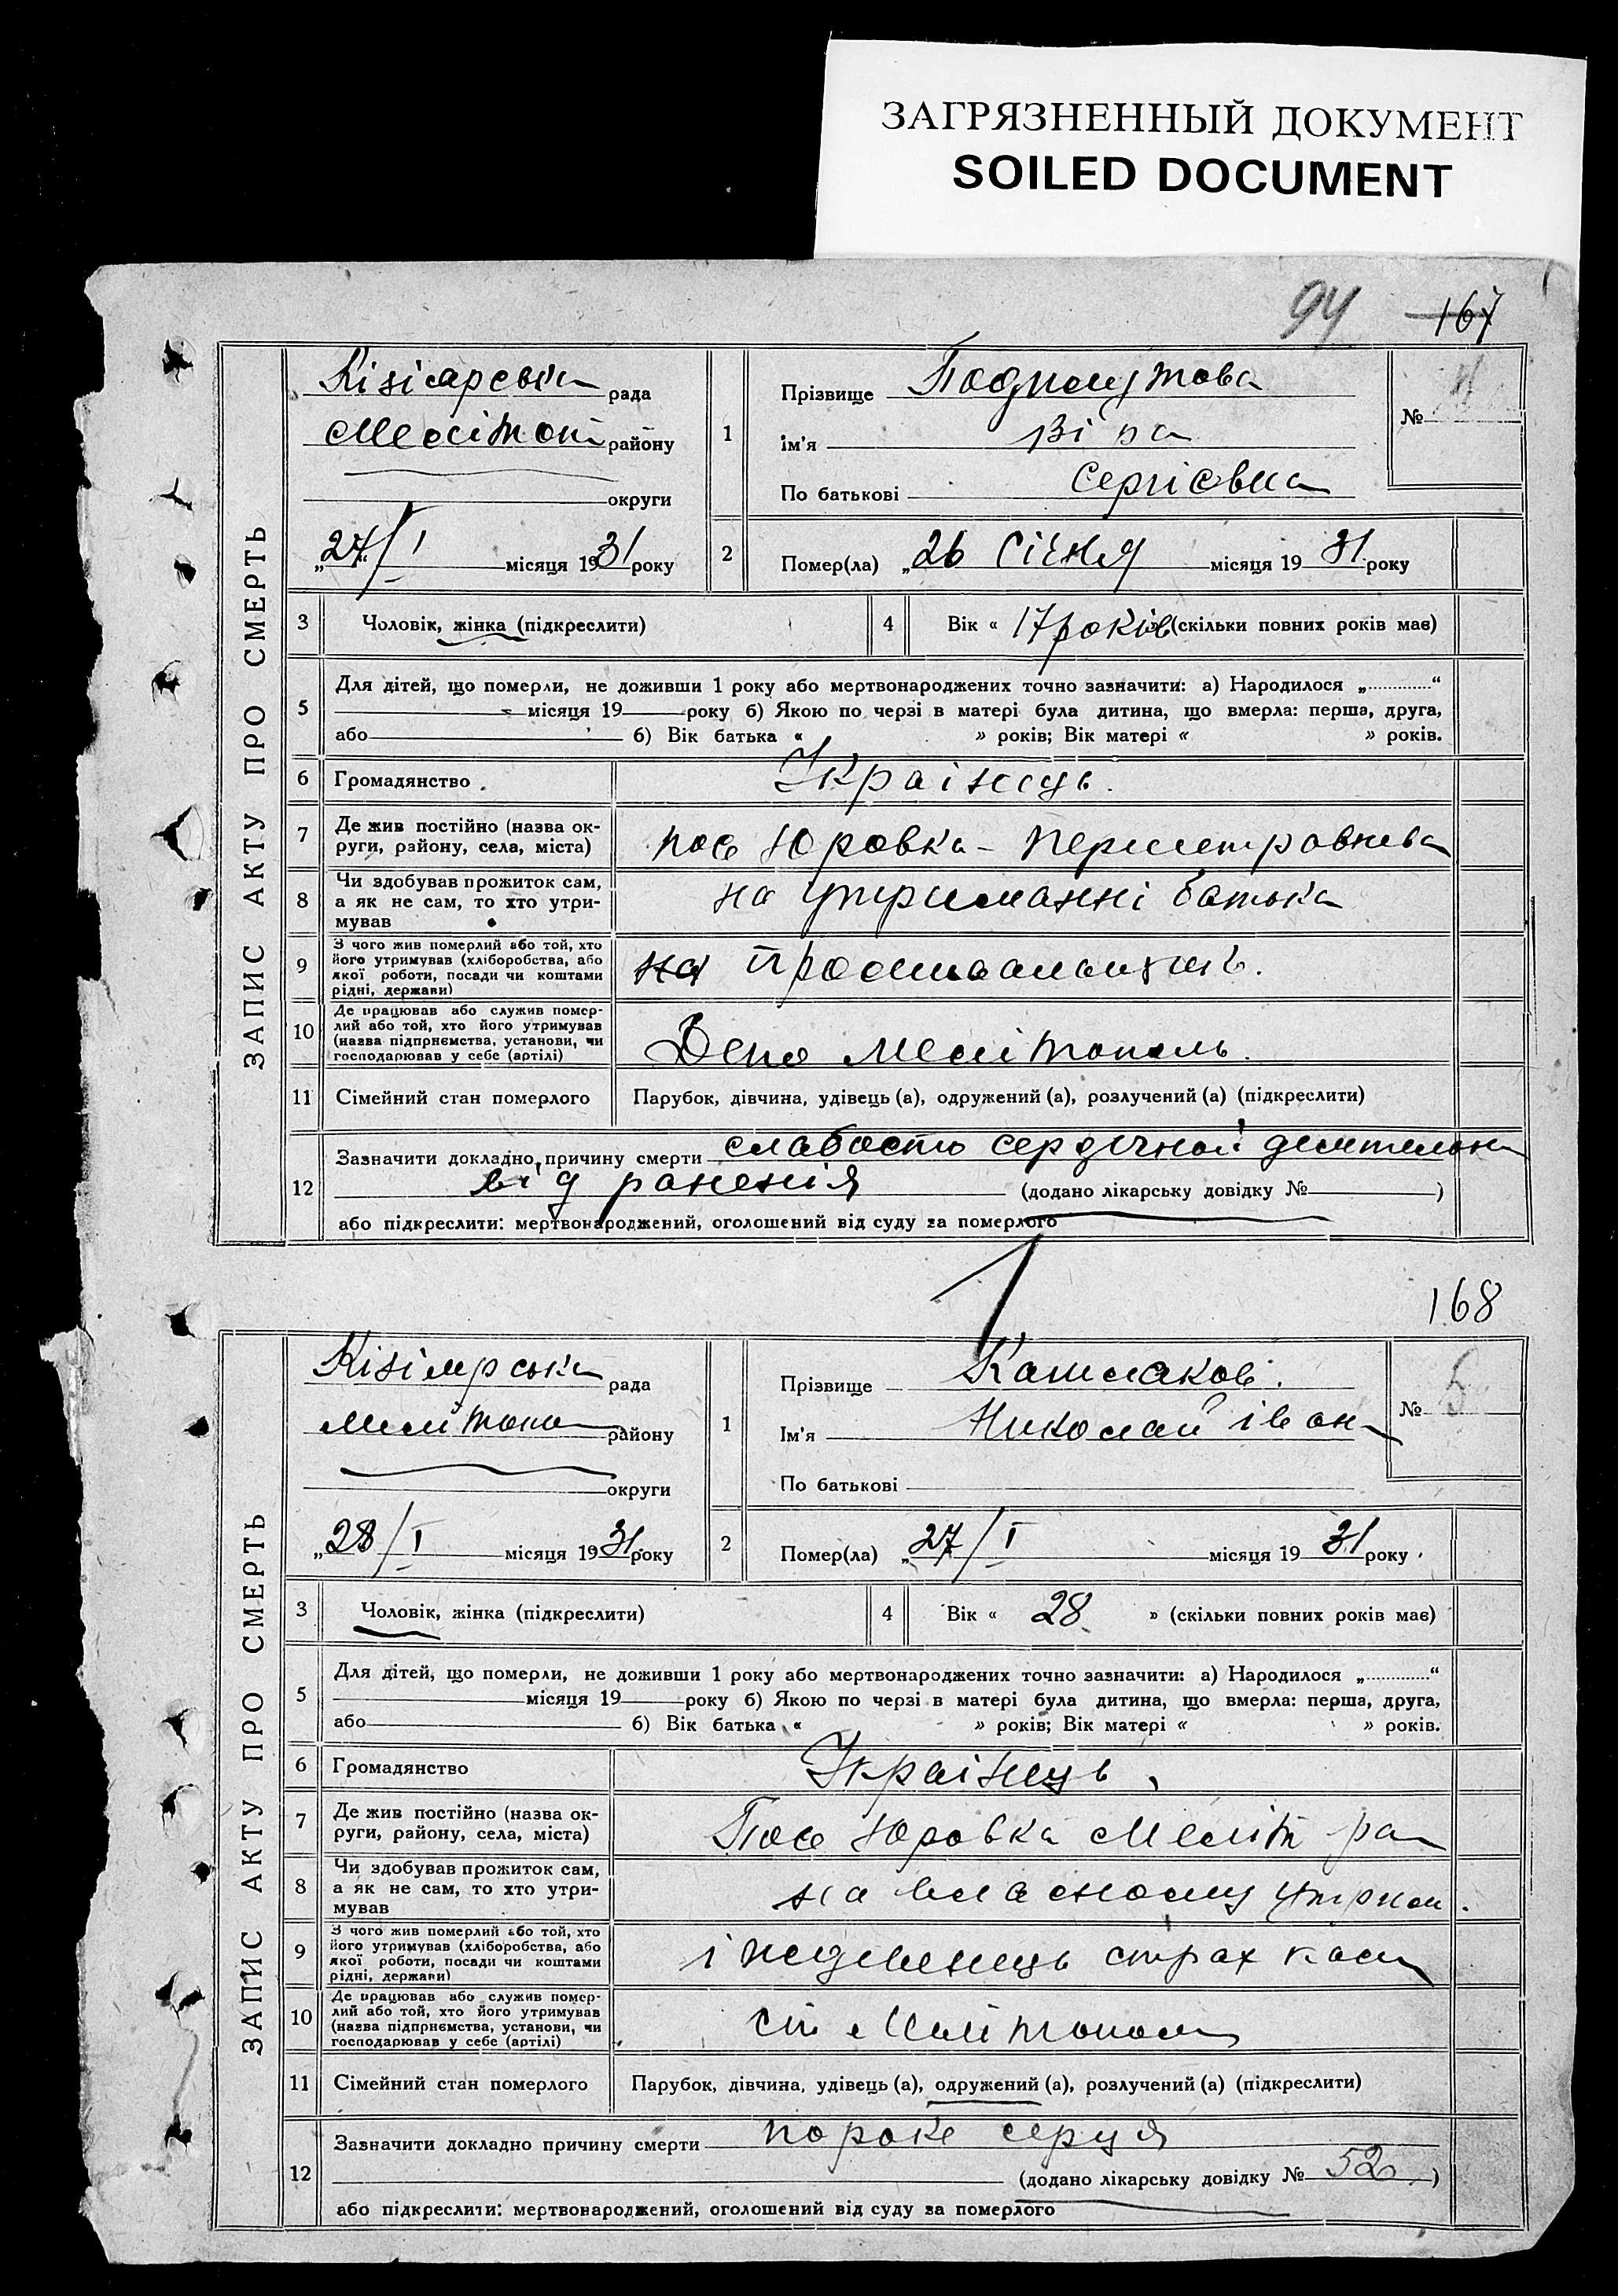 ЗАГРЯЗНЕННЫЙ ДОКУМЕНТ
SOILED DOCUMENT
94 167
ЗАПИС АКТУ ПРО СМЕРТЬ
рада
району
округи
„27/I місяця 1931 року
1
Прізвище
Ім'я Віра
По батькові Сергієвна
№ 4
2
Помер(ла) „26 Січня місяця 19 31 року
3 Чоловік, жінка (підкреслити)
4 Вік « 17 років (скільки повних років має)
5 Для дітей, що померли, не доживши 1 року або мертвонароджених точно зазначити: а) Народилося „ “
місяця 19 року б) Якою по черзі в матері була дитина, що вмерла: перша, друга,
або б) Вік батька « » років; Вік матері « » років.
6 Громадянство Українець.
7 Де жив постійно (назва ок-
руги, району, села, міста)
пос Юровка -
8 Чи здобував прожиток сам,
а як не сам, то хто утри-
мував
на утриманні батька
9 З чого жив померлий або той, хто
його утримував (хліборобства, або
якої роботи, посади чи коштами
рідні, держави)
10 Де працював або служив помер-
лий або той, хто його утримував
(назва підприємства, установи, чи
господарював у себе (артілі)
Депо Мелітополь.
11 Сімейний стан померлого Парубок, дівчина, удівець (а), одружений (а), розлучений (а) (підкреслити)
12 Зазначити докладно причину смерти слабость сердечной деятельн
від раненія (додано лікарську довідку № )
або підкреслити: мертвонароджений, оголошений від суду за померлого
168
ЗАПИС АКТУ ПРО СМЕРТЬ
рада
району
округи
„28/I місяця 1931 року
1
Прізвище
Ім'я Николай Іван
По батькові
№ 5
2
Помер(ла) „27/I місяця 19 31 року
3 Чоловік, жінка (підкреслити)
4 Вік « 28 » (скільки повних років має)
5 Для дітей, що померли, не доживши 1 року або мертвонароджених точно зазначити: а) Народилося „ “
місяця 19 року б) Якою по черзі в матері була дитина, що вмерла: перша, друга,
або б) Вік батька « » років; Вік матері « » років.
6 Громадянство Українець
7 Де жив постійно (назва ок-
руги, району, села, міста)
Пос Юровка Меліт ра
8 Чи здобував прожиток сам,
а як не сам, то хто утри-
мував
на власному утрим.
9 З чого жив померлий або той, хто
його утримував (хліборобства, або
якої роботи, посади чи коштами
рідні, держави)
страх каси
10 Де працював або служив помер-
лий або той, хто його утримував
(назва підприємства, установи, чи
господарював у себе (артілі)
ст Мелітополь
11 Сімейний стан померлого Парубок, дівчина, удівець (а), одружений (а), розлучений (а) (підкреслити)
12 Зазначити докладно причину смерти пороке серця
(додано лікарську довідку № 52 )
або підкреслити: мертвонароджений, оголошений від суду за померлого